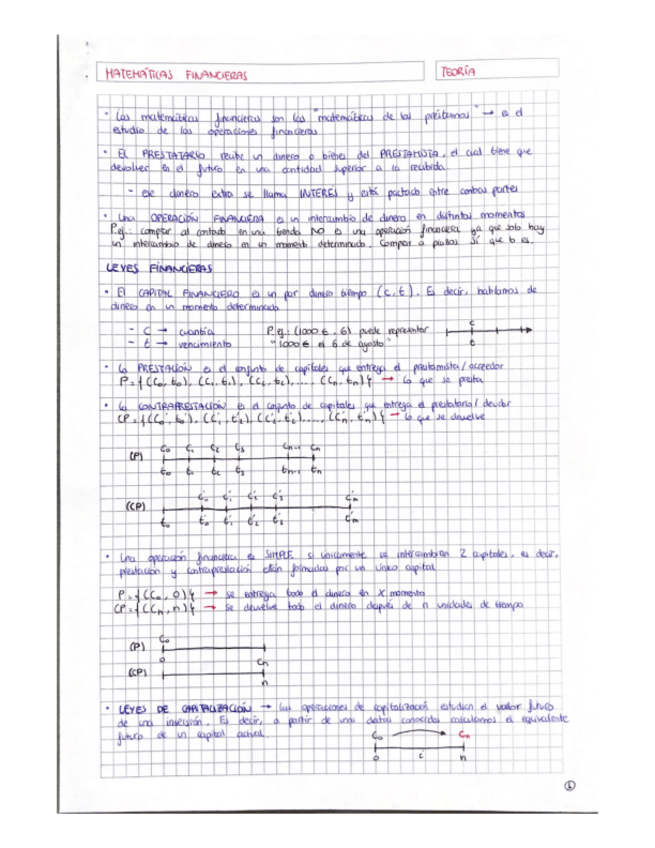 MATEMÁTICAS FINANCIERAS
TEORÍA
· Las matemáticas financieras son las "matemáticas de los préstamos" → es el
estudio de las operaciones financieras
· El PRESTATARIO recibe un dinero o bienes del PRESTAMISTA, el cual tiene que
devolver en el futuro en una cantidad superior a la recibida
- ese dinero extra se llama INTERÉS y está pactado entre ambas partes
· Una OPERACIÓN FINANCIERA es un intercambio de dinero en distintos momentos
P.ej.: comprar al contado en una tienda NO es una operación financiera ya que solo hay
un intercambio de dinero en un momento determinado. Comprar a plazos sí que lo es.
LEYES FINANCIERAS
· El CAPITAL FINANCIERO es un par dinero tiempo (c, t). Es decir, hablamos de
dinero en un momento determinado
- C → cuantía P.ej.: (1000 €, 6) puede representar
- t → vencimiento "1000 € el 6 de agosto"
c
t
· La PRESTACIÓN es el conjunto de capitales que entrega el prestamista / acreedor
P = {(C₀, t₀), (C₁, t₁), (C₂, t₂), ..., (Cn, tn)} → lo que se presta
· La CONTRAPRESTACIÓN es el conjunto de capitales que entrega el prestatario / deudor
CP = {(C'₀, t'₀), (C'₁, t'₁), (C'₂, t'₂), ..., (C'n, t'n)} → lo que se devuelve
C₀ C₁ C₂ C₃ Cn-1 Cn
(P)
t₀ t₁ t₂ t₃ tn-1 tn
C'₀ C'₁ C'₂ C'₃ C'm
(CP)
t₀ t'₀ t'₁ t'₂ t'₃ C'm
· Una operación financiera es SIMPLE si únicamente se intercambian 2 capitales, es decir,
prestación y contraprestación están formadas por un único capital
P = {(C₀, 0)} → se entrega todo el dinero en X momento
CP = {(Cn, n)} → se devuelve todo el dinero después de n unidades de tiempo
C₀
(P)
0 Cn
(CP)
n
· LEYES DE CAPITALIZACIÓN → Las operaciones de capitalización estudian el valor futuro
de una inversión. Es decir, a partir de unos datos conocidos calculamos el equivalente
futuro de un capital actual.
C₀ Cn
0 i n
1